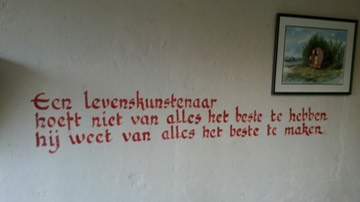 Een levenskunstenaar
hoeft niet van alles het beste te hebben
hij weet van alles het beste te maken.